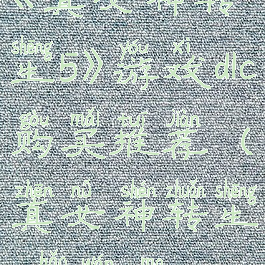 《真女神转
shēng yóu xì
生5》游戏dlc
gòu mǎi tuī jiàn
购买推荐（
zhēn nǚ shén zhuǎn shēng
真女神转生